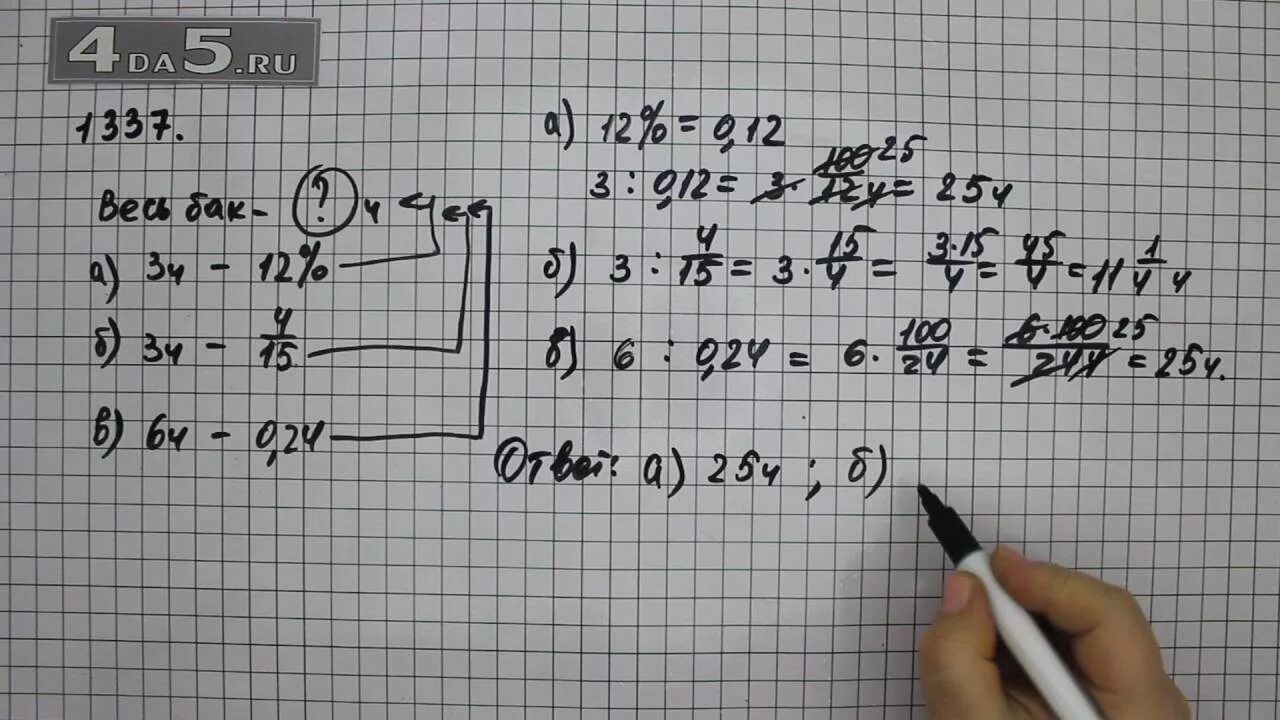 4DA5.RU
1337.
Весь бак - ? ч
а) 3ч - 12%
б) 3ч - 4/15
в) 6ч - 0,24
а) 12% = 0,12
3 : 0,12 = 3 · 100 25/12 4 = 25ч
б) 3 : 4/15 = 3 · 15/4 = 3·15/4 = 45/4 = 11 1/4 ч
в) 6 : 0,24 = 6 · 100/24 = 6·100 25/24 4 = 25ч.
Ответ: а) 25ч ; б)